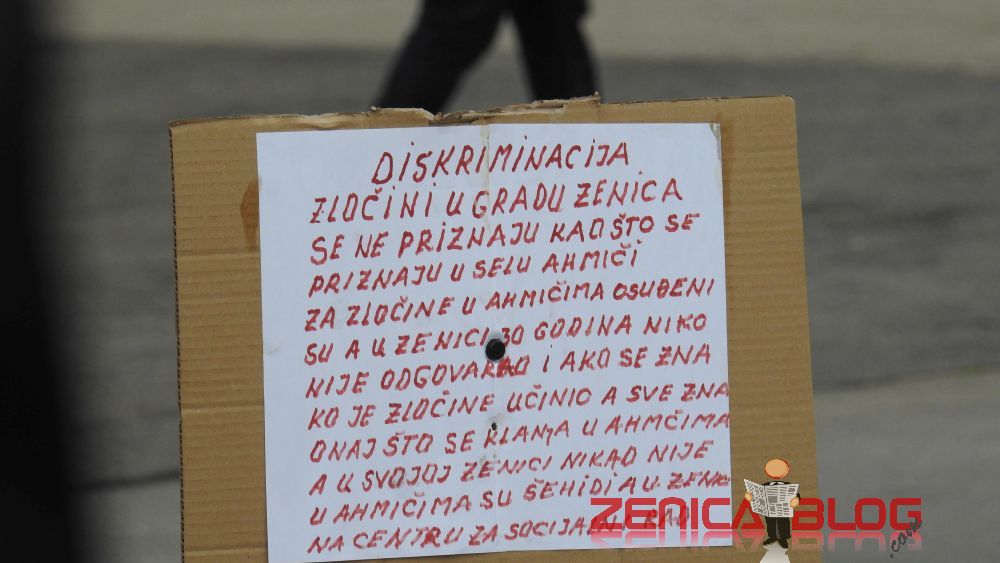 DISKRIMINACIJA
ZLOČINI U GRADU ZENICA
SE NE PRIZNAJU KAO ŠTO SE
PRIZNAJU U SELU AHMIČI
ZA ZLOČINE U AHMIČIMA OSUĐENI
SU A U ZENICI 30 GODINA NIKO
NIJE ODGOVARAO I AKO SE ZNA
KO JE ZLOČINE UČINIO A SVE ZNA
ONAJ ŠTO SE KLANJA U AHMČIMA
A U SVOJOJ ZENICI NIKAD NIJE
U AHMIČIMA SU ŠEHIDI A U ZENC
NA CENTRU ZA SOCIJALNI RAD
ZENICA BLOG
.com